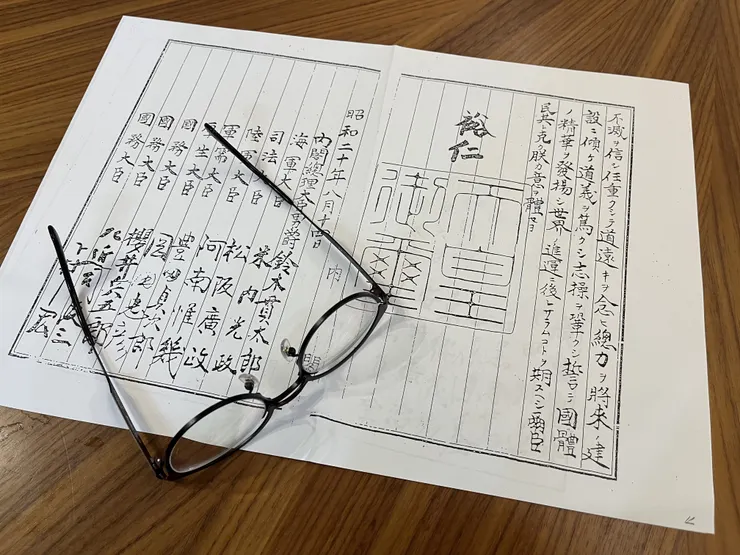 不滅ヲ信シ任重クシテ道遠キヲ念ヒ總力ヲ將來ノ建
設ニ傾ケ道義ヲ篤クシ志操ヲ鞏クシ誓テ國體
ノ精華ヲ發揚シ世界ノ進運ニ後レサラムコトヲ期スヘシ爾臣
民其レ克ク朕カ意ヲ體セヨ
裕仁
天皇
御璽
内閣
昭和二十年八月十四日
内閣總理大臣男爵鈴木貫太郎
海軍大臣 米内光政
司法大臣 松阪廣政
陸軍大臣 阿南惟幾
軍需大臣 豊田貞次郎
厚生大臣 岡田忠彦
國務大臣 櫻井兵五郎
國務大臣
國務大臣